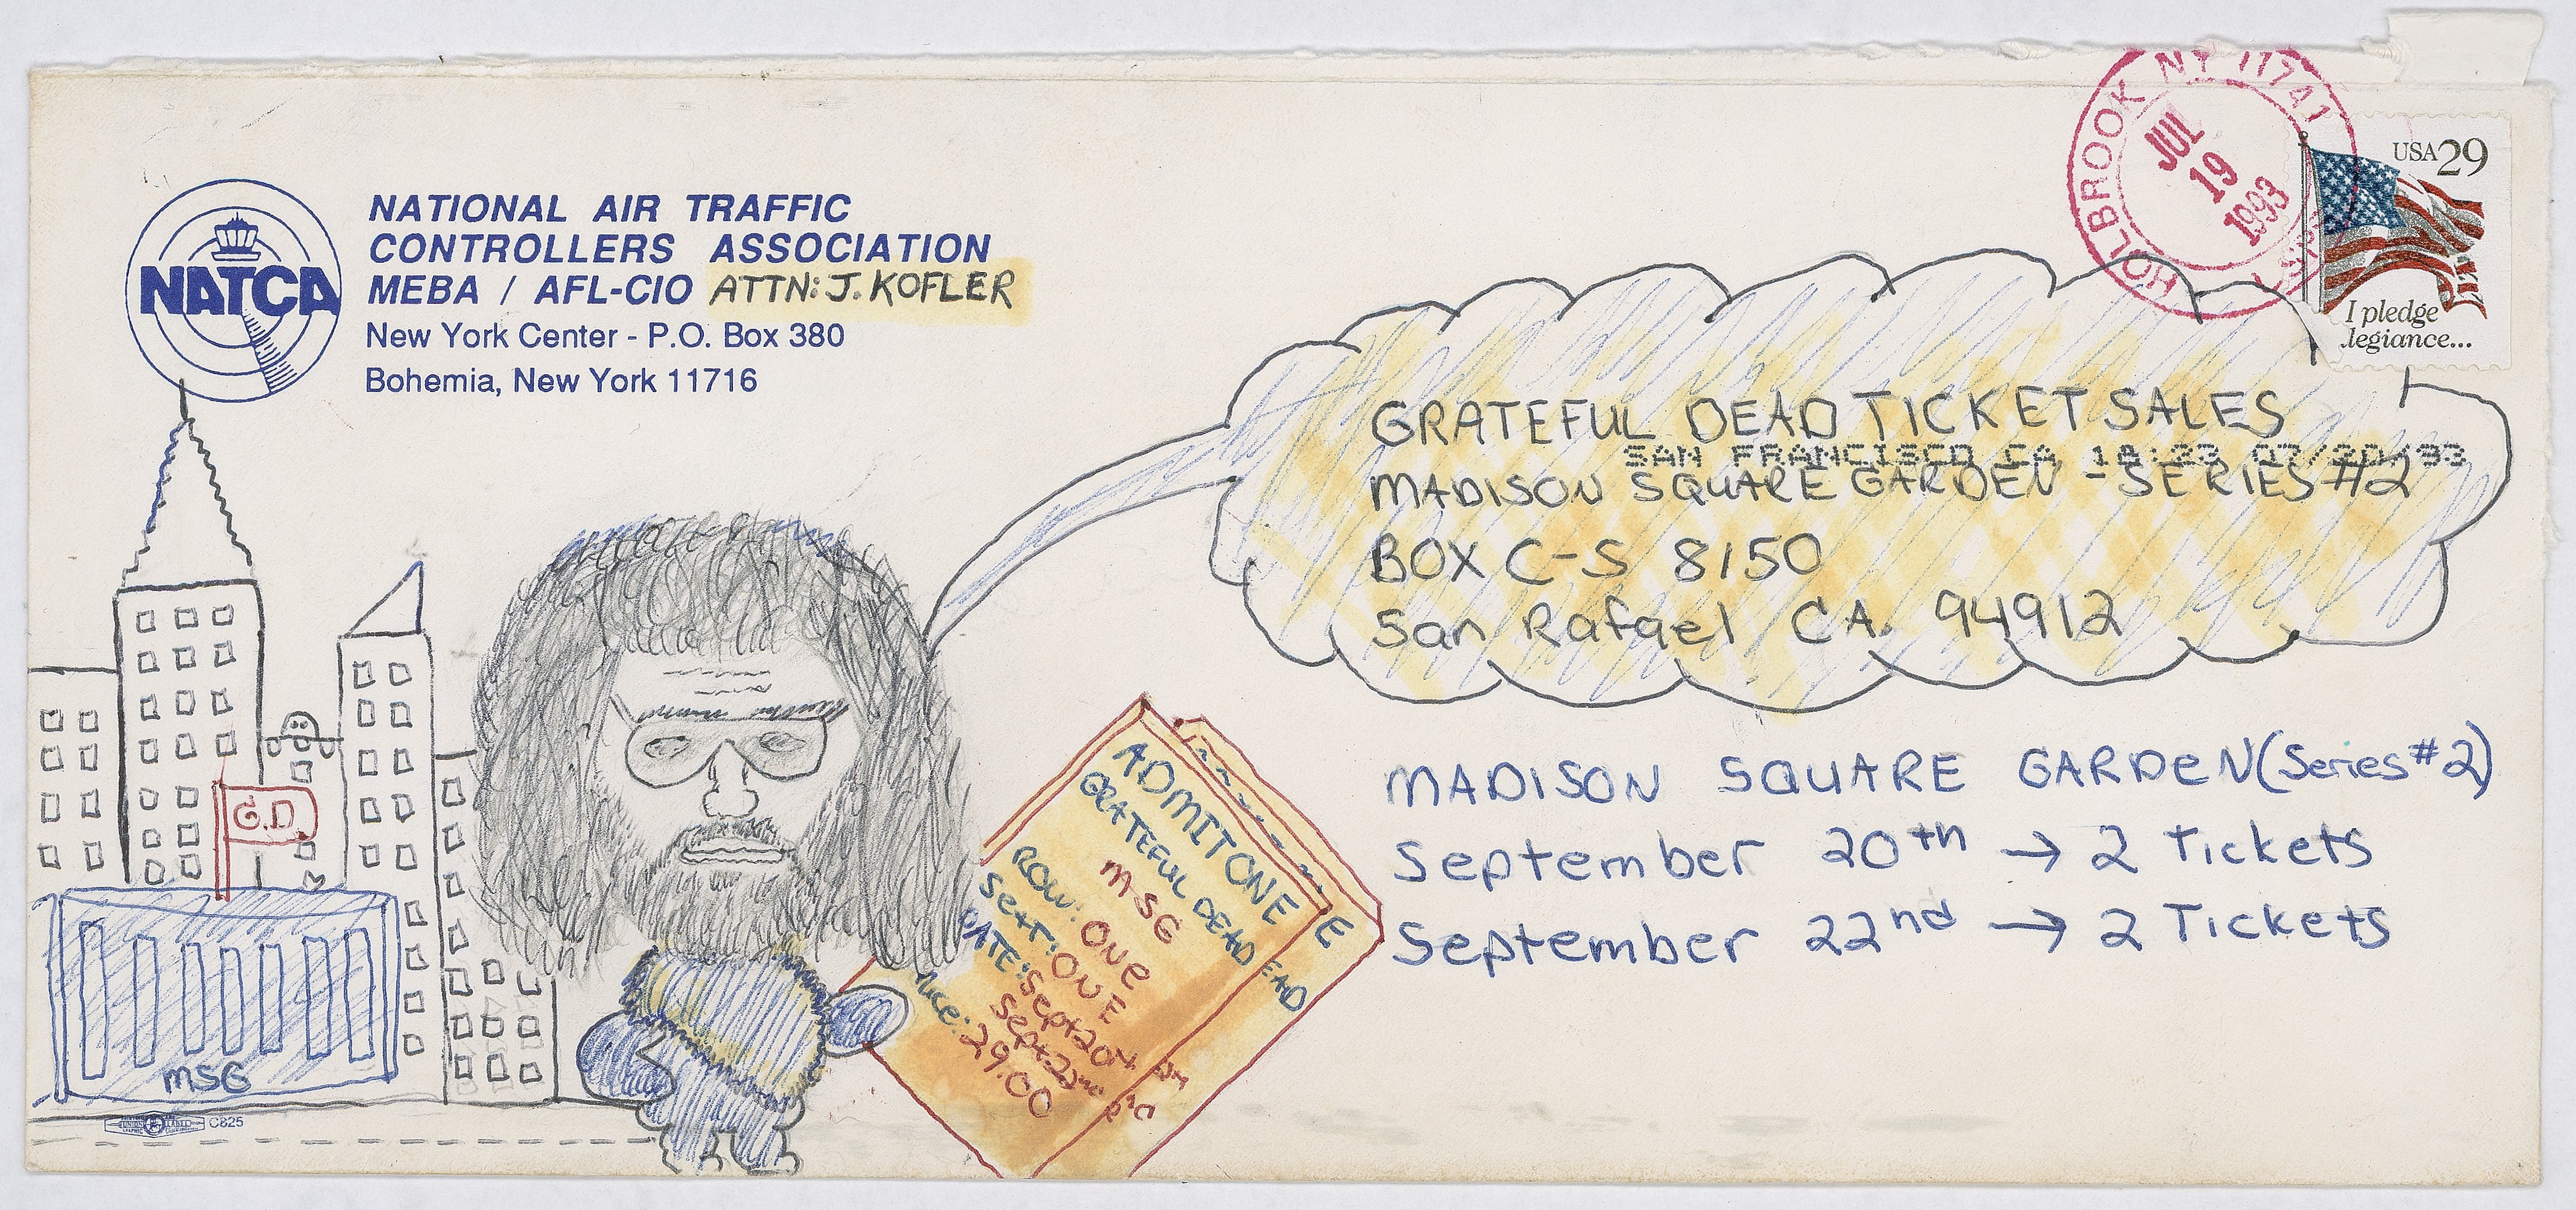 NATCA
NATIONAL AIR TRAFFIC
CONTROLLERS ASSOCIATION
MEBA / AFL-CIO ATTN: J. KOFLER
New York Center - P.O. Box 380
Bohemia, New York 11716
HOLBROOK NY 11741
JUL
19
1993
USA 29
I pledge
legiance...
GRATEFUL DEAD TICKET SALES
SAN FRANCISCO CA 18:23 07/20/93
MADISON SQUARE GARDEN - SERIES #2
BOX C-S 8150
San Rafael CA. 94912
MADISON SQUARE GARDEN (Series #2)
September 20th → 2 Tickets
September 22nd → 2 Tickets
ADMIT ONE
GRATEFUL DEAD
MSG
ROW: ONE
Seat: ONE
DATE: Sept 20th
Sept 22nd
29.00
E
EAD
G.D.
MSG
C825